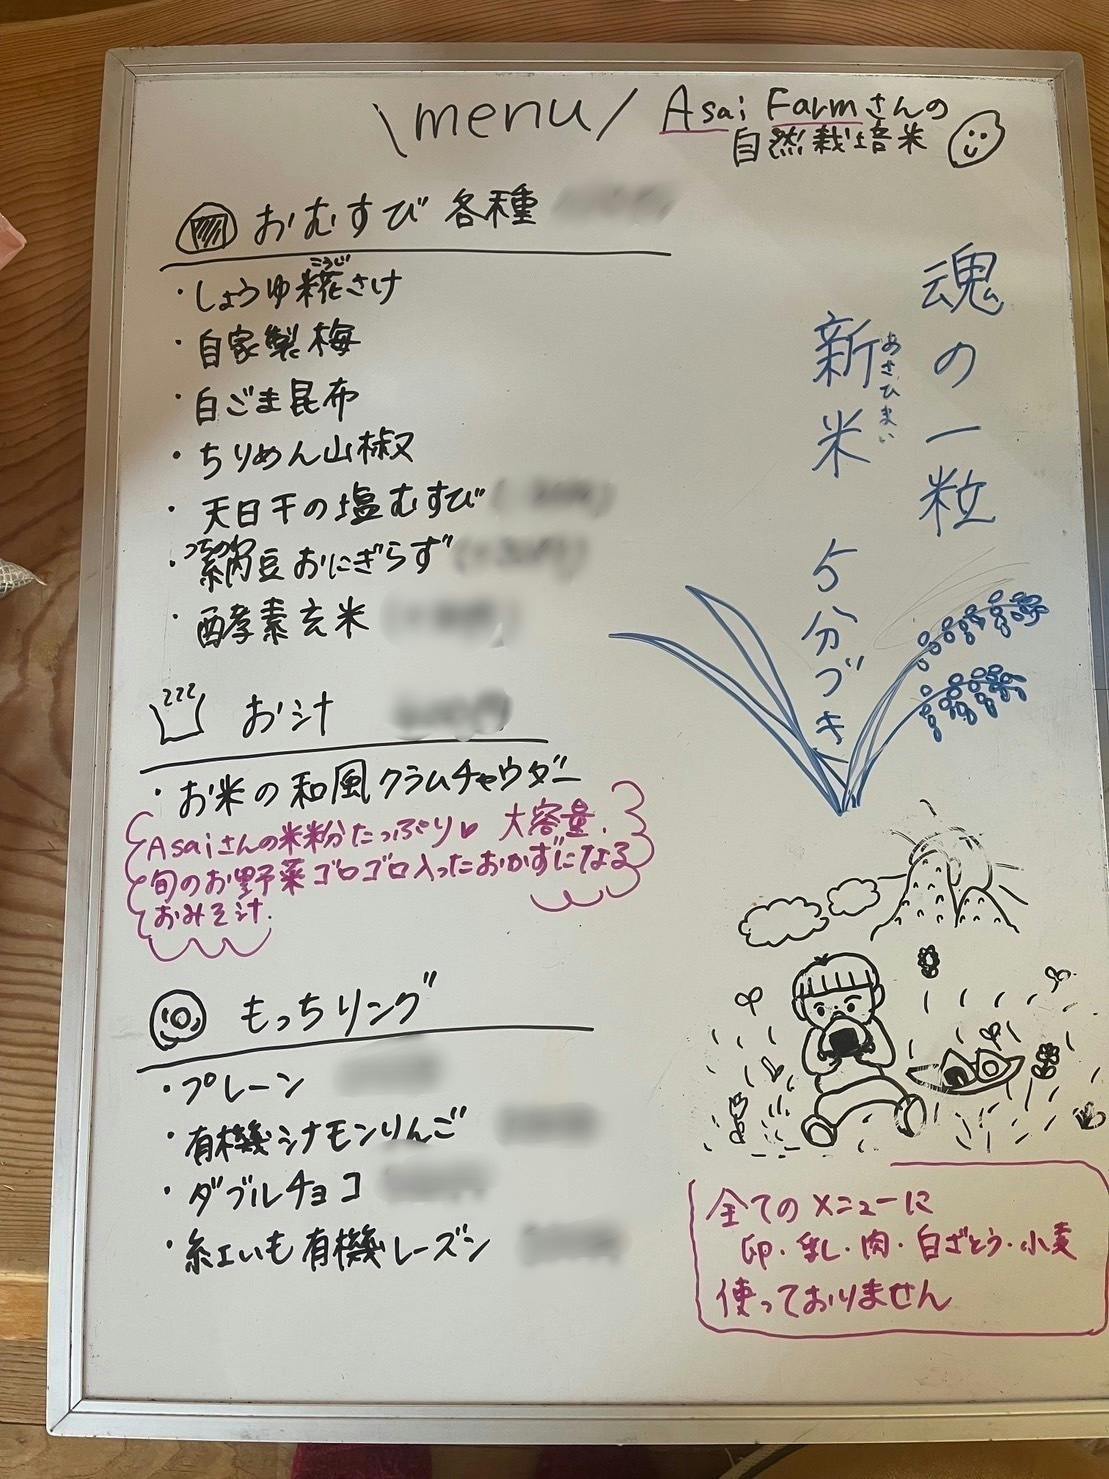 \menu/
Asai Farmさんの
自然栽培米
おむすび 各種
こうじ
・しょうゆ糀さけ
・自家製梅
・白ごま昆布
・ちりめん山椒
・天日干の塩むすび
・納豆おにぎらず
・酵素玄米
お汁
・お米の和風クラムチャウダー
Asaiさんの米粉たっぷり♥ 大容量.
旬のお野菜ゴロゴロ入ったおかずになる
おみそ汁.
もっちリング
・プレーン
・有機シナモンりんご
・ダブルチョコ
・紅いも有機レーズン
魂の一粒
あさひまい
新米 5分づき
全てのメニューに
卵・乳し・肉・白ざとう・小麦
使っておりません